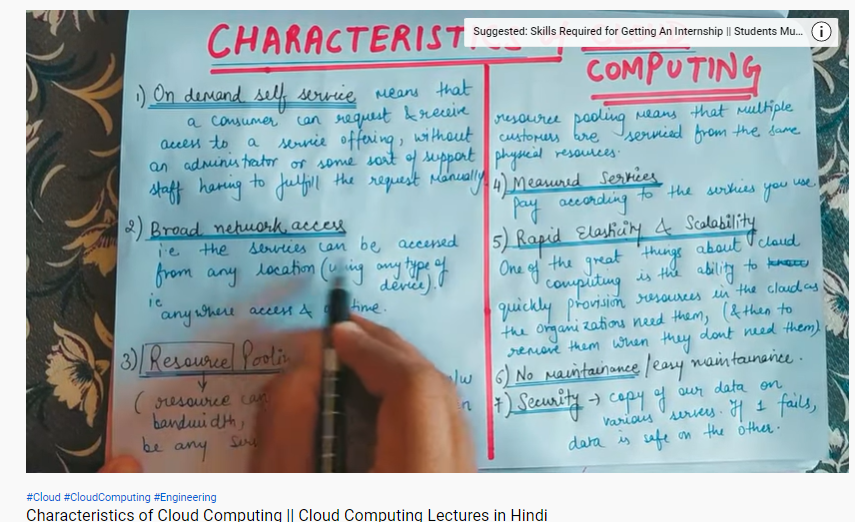 CHARACTERIST
Suggested: Skills Required for Getting An Internship || Students Mu...
COMPUTING
1) On demand self service means that
a consumer can request & receive
access to a service offering, without
an administrator or some sort of support
staff having to fulfill the request manually.
2) Broad network access
i.e the services can be accessed
from any location (using any type of
device).
ie
anywhere access & time.
3) Resource Poolin
( resource can
bandwidth,
be any ser
resource pooling means that multiple
customers are serviced from the same
physical resources.
b/w
n
4) Measured Services
pay according to the services you use
5) Rapid Elasticity & Scalability
One of the great things about cloud
computing is the ability to
quickly provision resources in the cloud as
the organizations need them, (& then to
remove them when they dont need them)
6) No maintainance / easy maintainance.
7) Security → copy of our data on
various servers. If 1 fails,
data is safe on the other.
#Cloud #CloudComputing #Engineering
Characteristics of Cloud Computing || Cloud Computing Lectures in Hindi